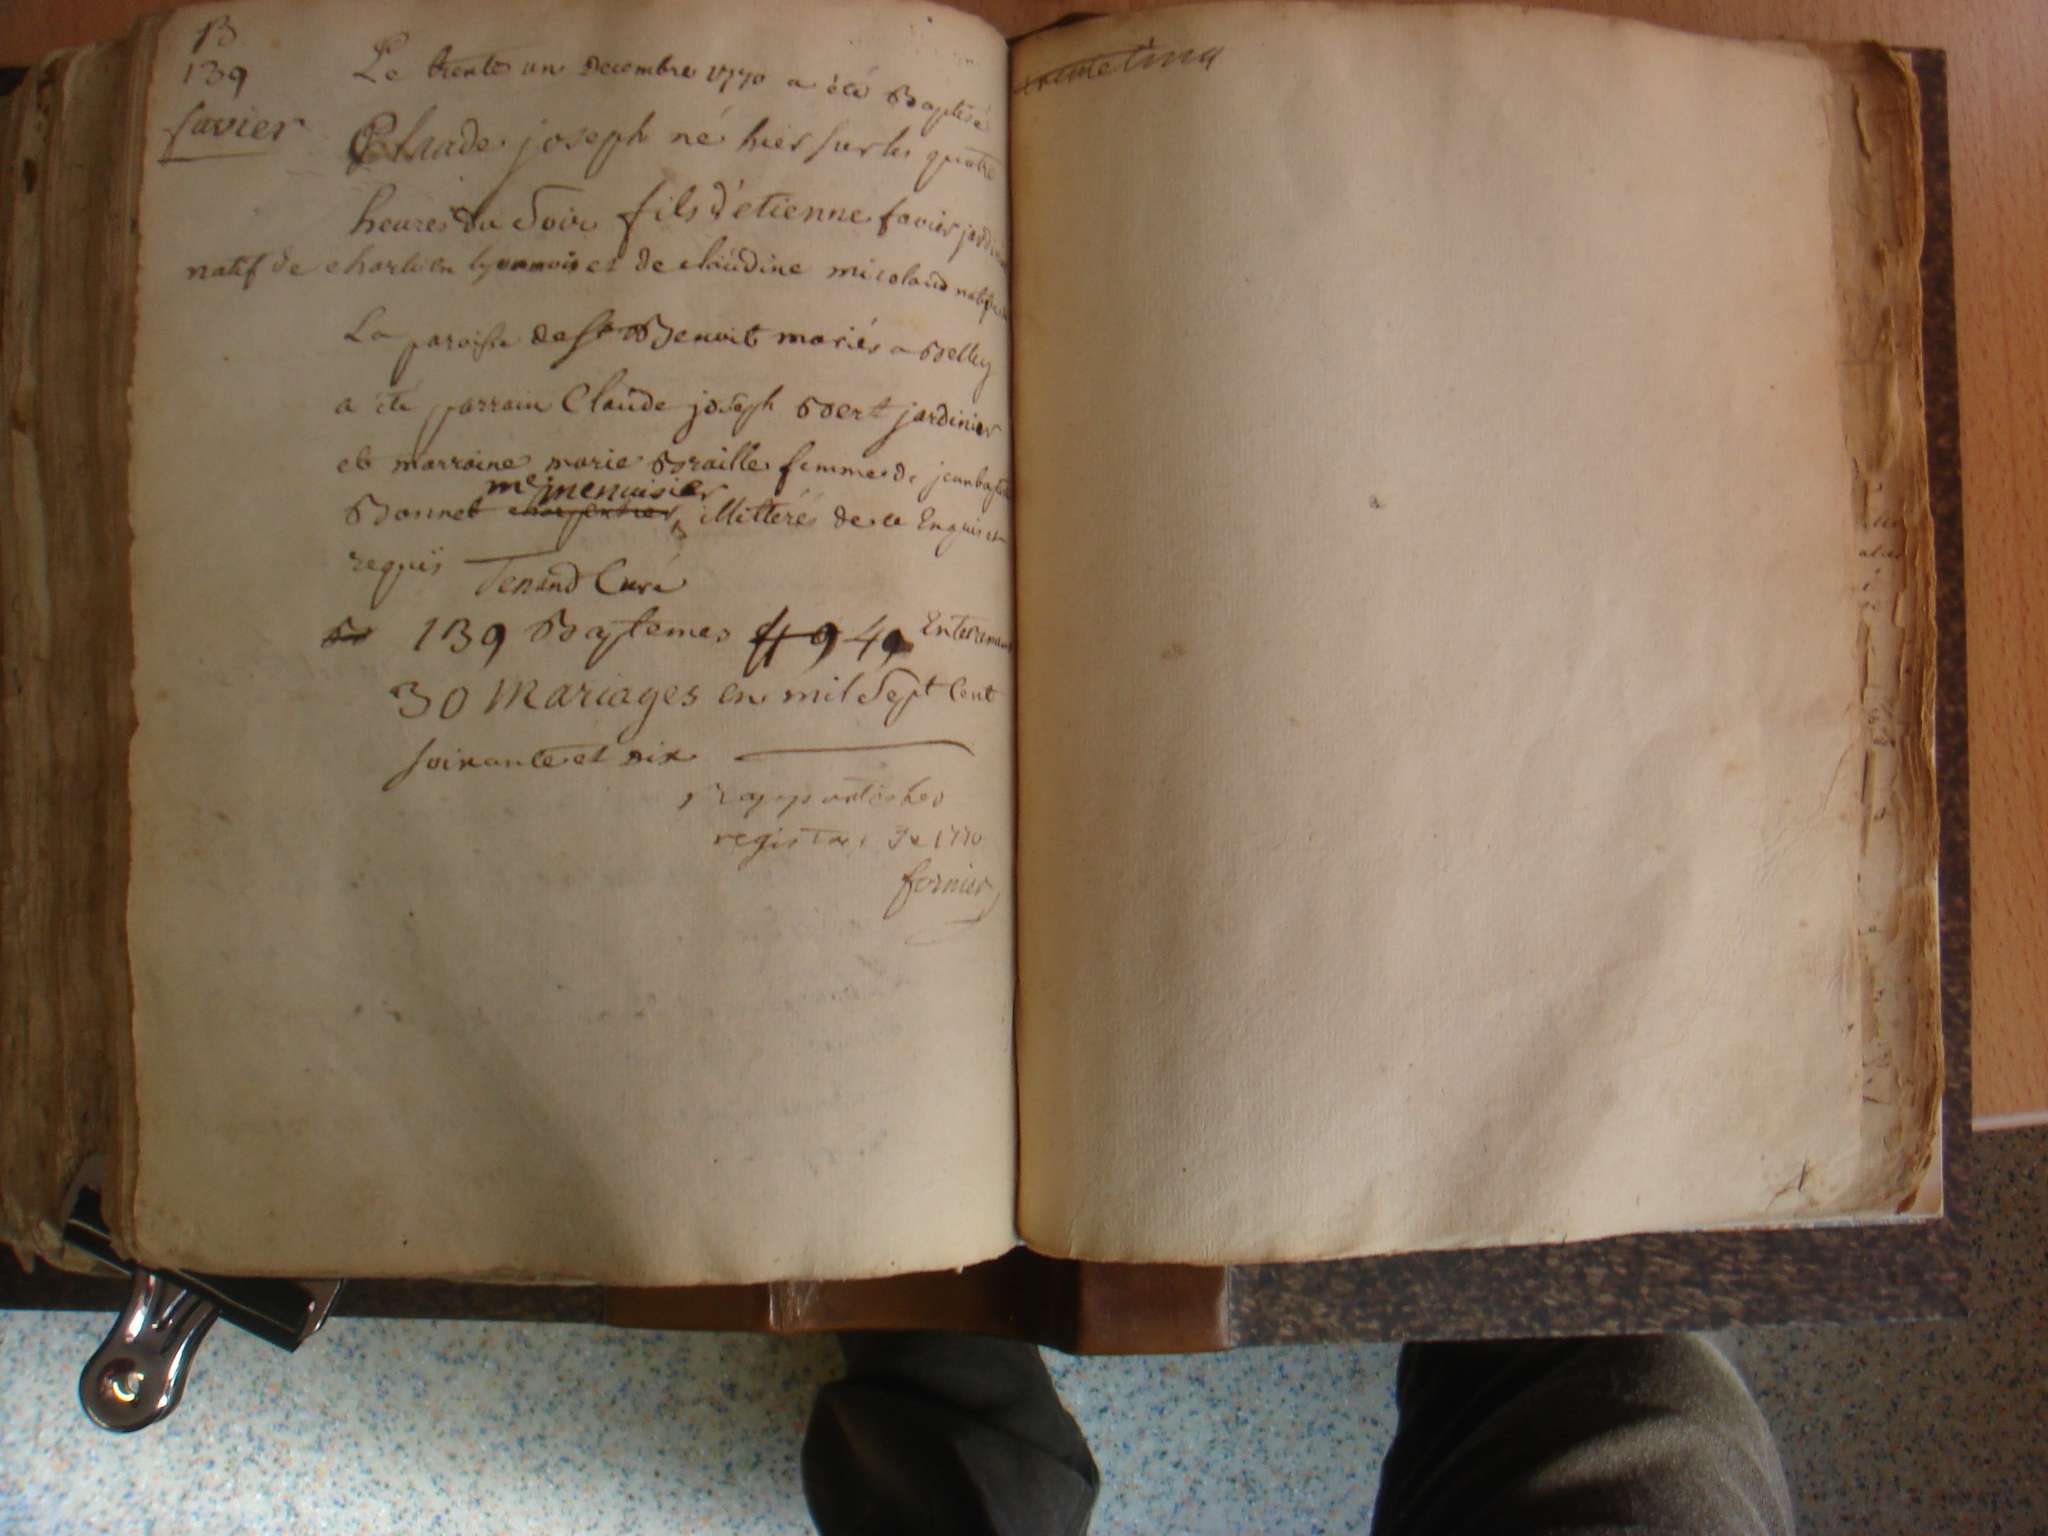 B
139
favier
Le trente un decembre 1770 a été Baptisé
Claude joseph né hier sur les quatre
heures du Soir fils d'étienne favier jardinier
natif de charlieu lyonnois et de claudine micoland native de
La paroisse de st Benoit mariés a Belley
a été parrain Claude joseph Bert jardinier
et marraine marie Braille femme de jean baptiste
me menuisier
Bonnet charpentier, illitterés de ce Enquis et
requis Tenand Curé
139 Baptemes 49 49 Enterremens
30 Mariages en mil Sept Cent
soixante et dix
rapportés les
registres de 1770
fornier